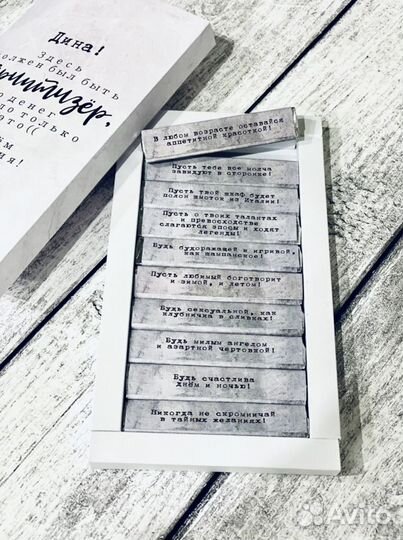 Дина!
Здесь
должен был быть
Фритизёр,
денег
только
это((
В любом возрасте оставайся
аппетитной красоткой!
Пусть тебе все молча
завидуют в сторонке!
Пусть твой шкаф будет
полон шмоток из Италии!
Пусть о твоих талантах
и превосходстве
слагаются эпосы и ходят
легенды!
Будь будоражащей и игривой,
как шампанское!
Пусть любимый боготворит
и зимой, и летом!
Будь сексуальной, как
клубничка в сливках!
Будь милым ангелом
и азартной чертовкой!
Будь счастлива
днём и ночью!
Никогда не скромничай
в тайных желаниях!
Avito